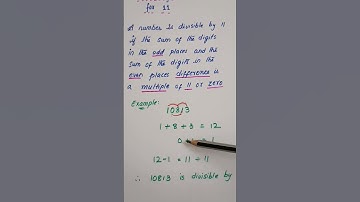 for 11
A number is divisible by 11
if the sum of the digits
in the odd places and the
sum of the digits in the
even places difference is
a multiple of 11 or zero
Example:
10813
1 + 8 + 3 = 12
0 = 1
12-1 = 11 ÷ 11
∴ 10813 is divisible by